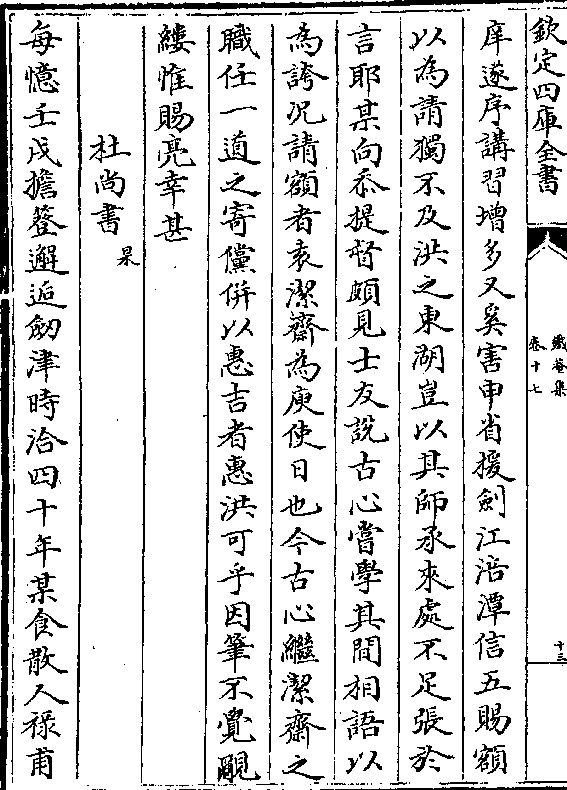 欽定四庫全書
蛻菴集
卷十七
十三
庠遂序講習增多又奚害申省援劍江涪潭信五賜額
以為請獨不及洪之東湖豈以其師承來處不足張於
言耶某向忝提督頗見士友說古心嘗學其間相語以
為誇况請額者袁潔齋為庾使日也今古心繼潔齋之
職任一道之寄儻併以惠吉者惠洪可乎因筆不覺覼
縷惟賜亮幸甚
杜尚書杲
每憶壬戌擔簦邂逅劒津時洽四十年某食散人祿甫